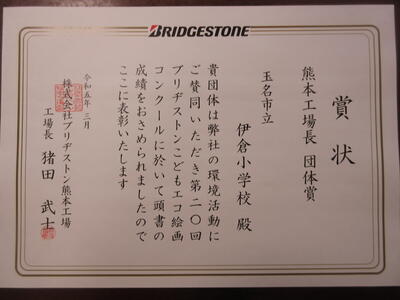 BRIDGESTONE
賞状
熊本工場長 団体賞
玉名市立
伊倉小学校 殿
貴団体は弊社の環境活動に
ご賛同いただき第二〇回
ブリヂストンこどもエコ絵画
コンクールに於いて頭書の
成績をおさめられましたので
ここに表彰いたします
令和五年 三月
株式会社ブリヂストン熊本工場
工場長 猪田 武士